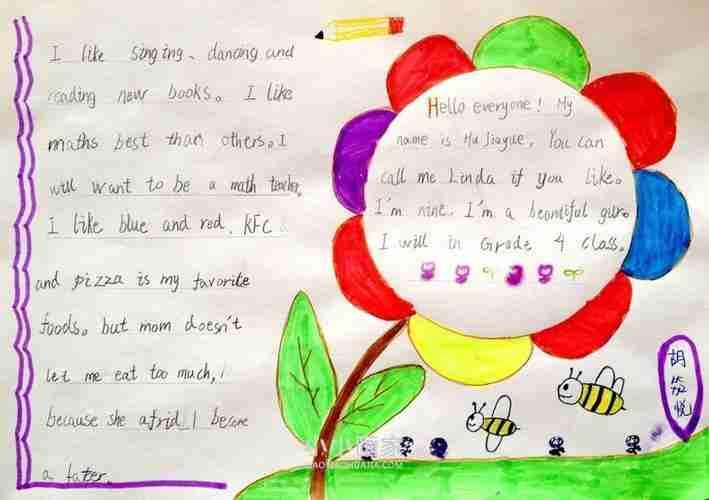 I like singing、dancing and
reading new books。I like
maths best than others。I
will want to be a math teacher.
I like blue and red. KFC
and pizza is my favorite
foods。but mom doesn't
let me eat too much,
because she afrid I become
a fater.
Hello everyone! My
name is Hu Jiayue, You can
call me Linda if you like。
I'm nine. I'm a beontiful
I will in Grade 4 class。
胡
悦